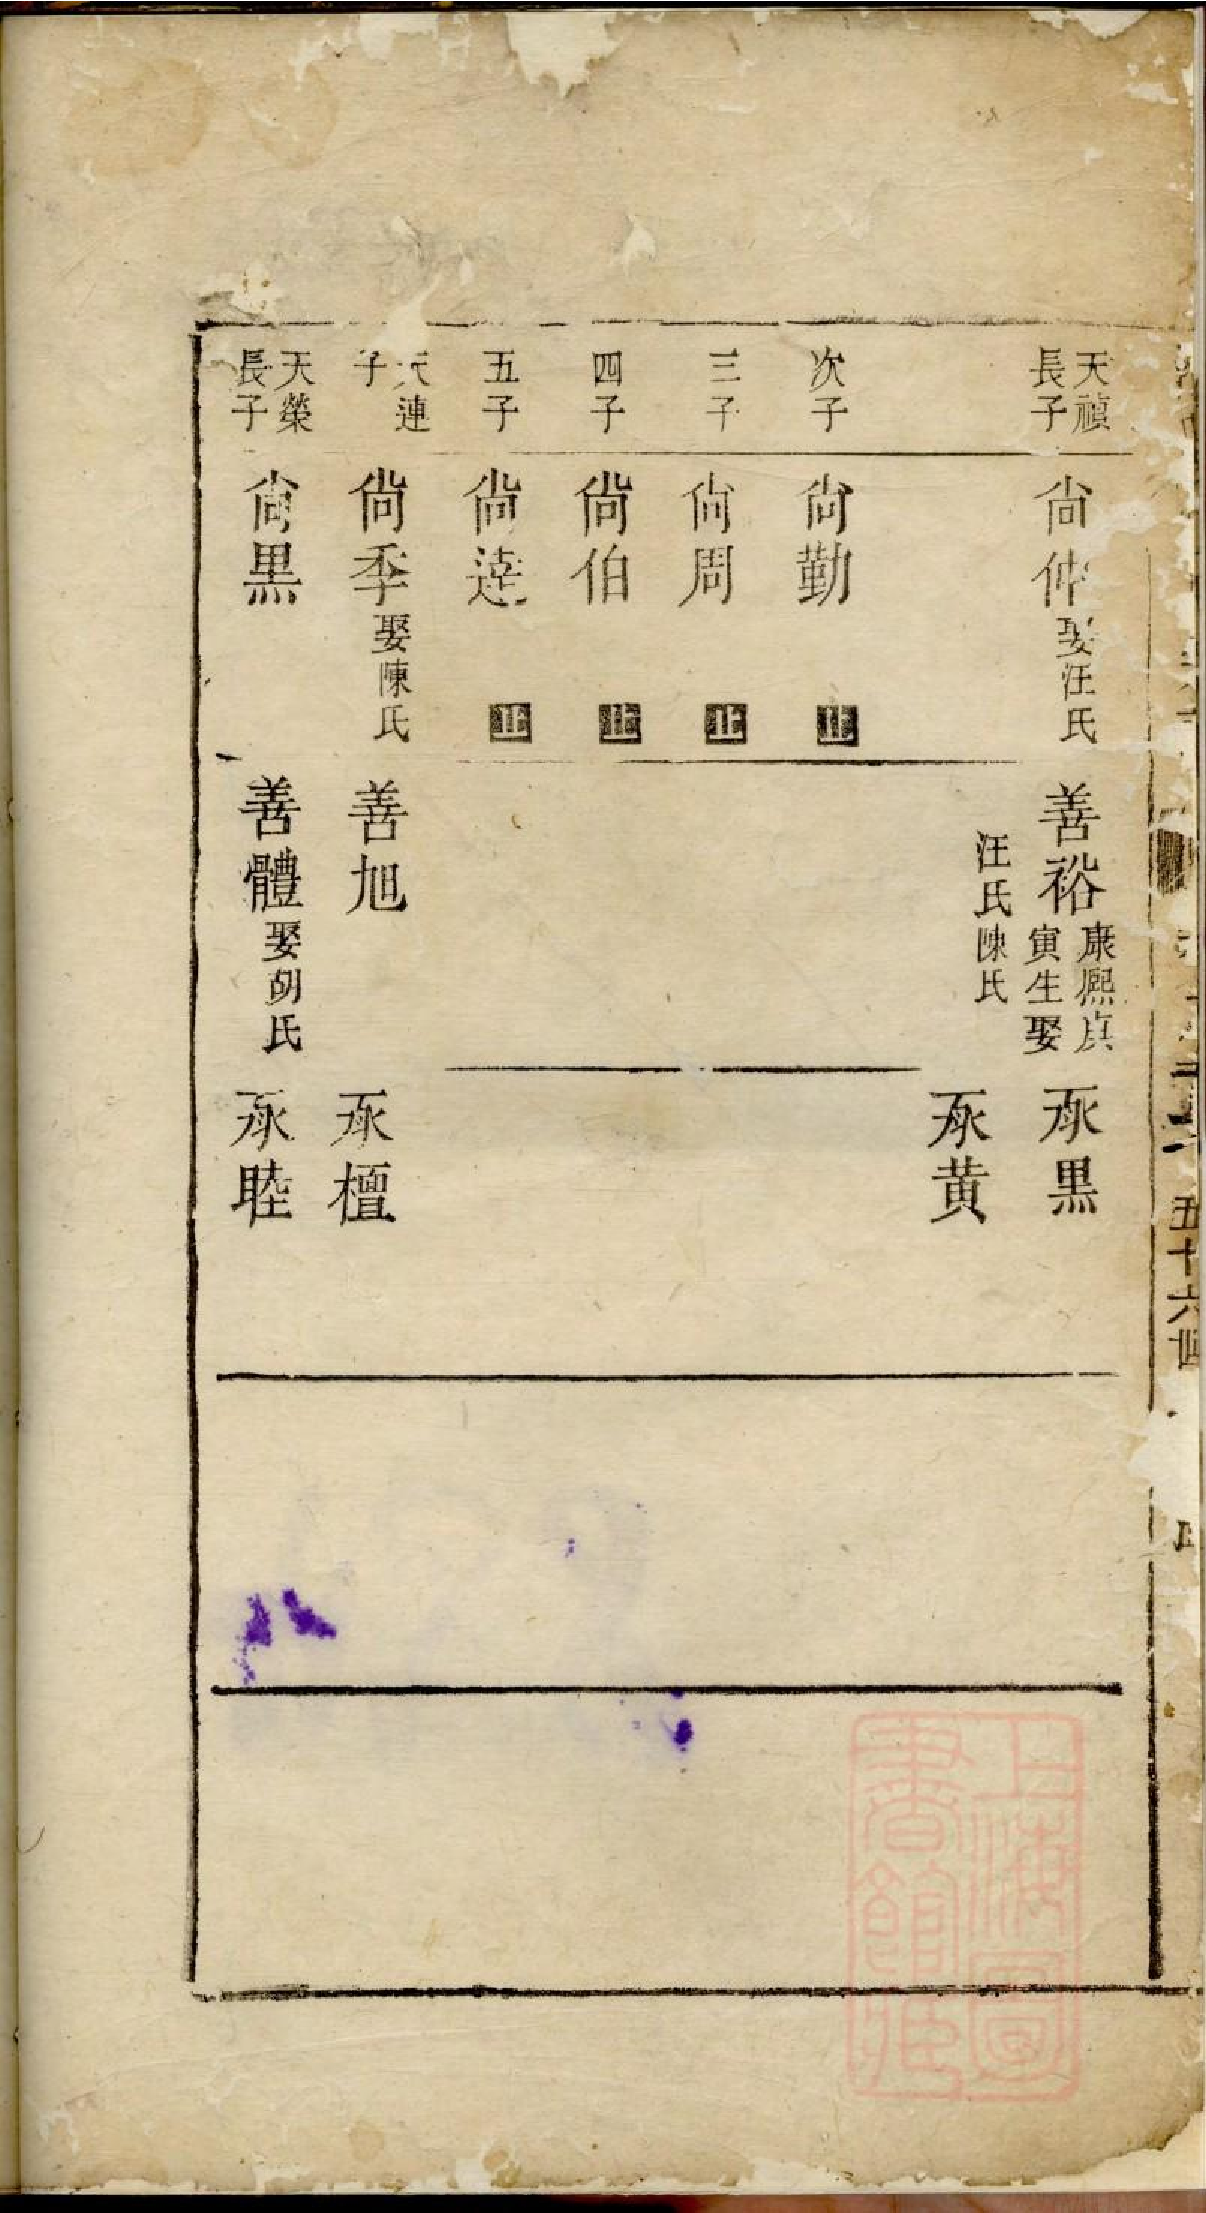 五十六世
天禎
長子
尙仲娶汪氏
善裕康熙庚
寅生娶
汪氏陳氏
承黒
承黄
次子
尙勤
止
三子
尙周
止
四子
尙伯
止
五子
尙達
止
天連
子
尙季娶陳氏
善旭
承檀
天榮
長子
尙黒
善體娶胡氏
承睦
上海圖
書館藏